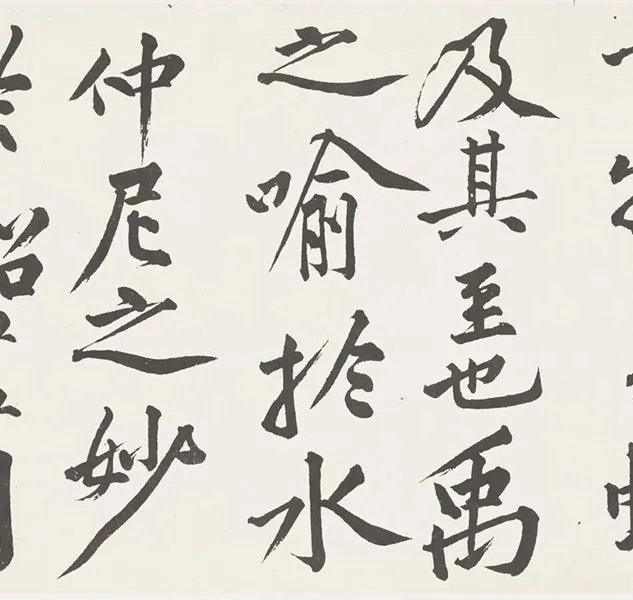 及其至也禹
之喻於水
仲尼之妙